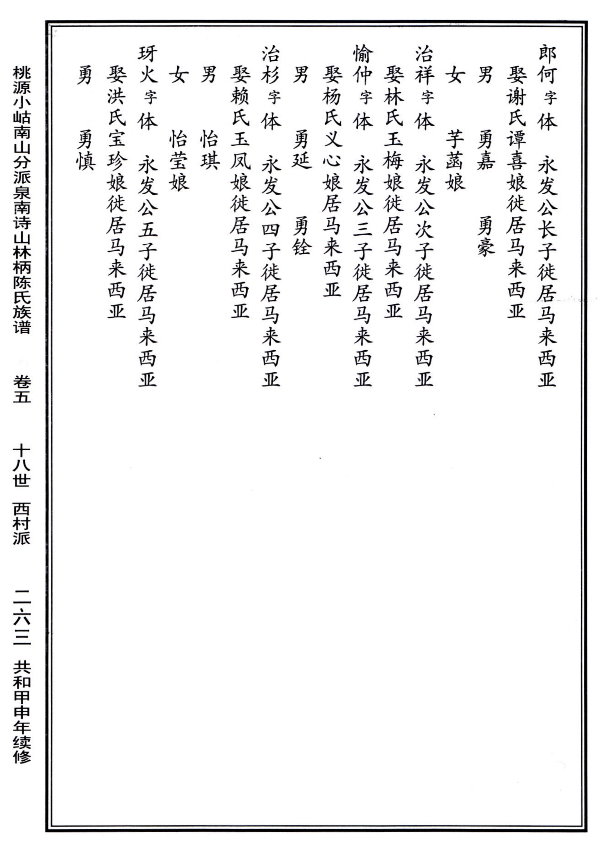 郎何字体　永发公长子徙居马来西亚
娶谢氏谭喜娘徙居马来西亚
男　勇嘉　勇豪
女　芋菡娘
治祥字体　永发公次子徙居马来西亚
娶林氏玉梅娘徙居马来西亚
愉仲字体　永发公三子徙居马来西亚
娶杨氏义心娘居马来西亚
男　勇延　勇铨
治杉字体　永发公四子徙居马来西亚
娶赖氏玉凤娘徙居马来西亚
男　怡琪
女　怡莹娘
玡火字体　永发公五子徙居马来西亚
娶洪氏宝珍娘徙居马来西亚
勇　勇慎
桃源小岵南山分派泉南诗山林柄陈氏族谱　卷五　十八世　西村派　二六三　共和甲申年续修